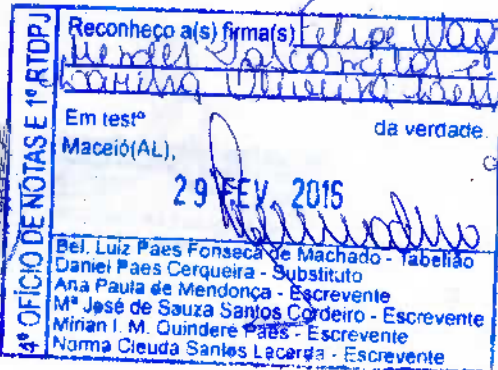 4º OFÍCIO DE NOTAS E 1º RTDPJ
Reconheço a(s) firma(s) Felipe
Mendes Vasconcelos e
Oliveira
Em testº da verdade.
Maceió(AL),
29 FEV 2016
Bel. Luiz Paes Fonseca de Machado - Tabelião
Daniel Paes Cerqueira - Substituto
Ana Paula de Mendonça - Escrevente
Mª José de Souza Santos Cordeiro - Escrevente
Mirian I. M. Quinderé Paes - Escrevente
Norma Cleuda Santos Lacerda - Escrevente